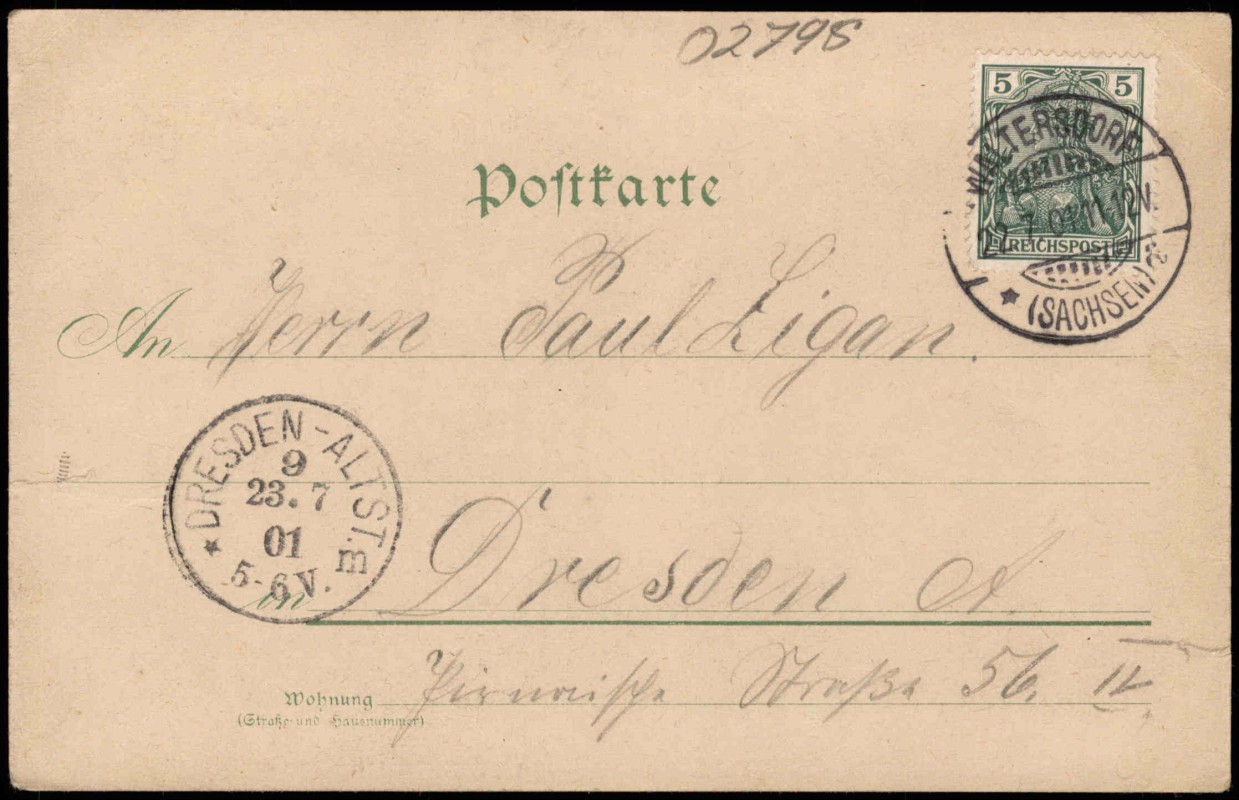 02795
5 5
REICHSPOST
WALTERSDORF
22.7.01.11-12V.
* (SACHSEN) a
Postkarte
An Herrn Paul Zigan.
* DRESDEN-ALTST. m
9
23.7
01
5-6V.
in Dresden A.
Wohnung Pirnaische Straße 56. II.
(Straße und Hausnummer)